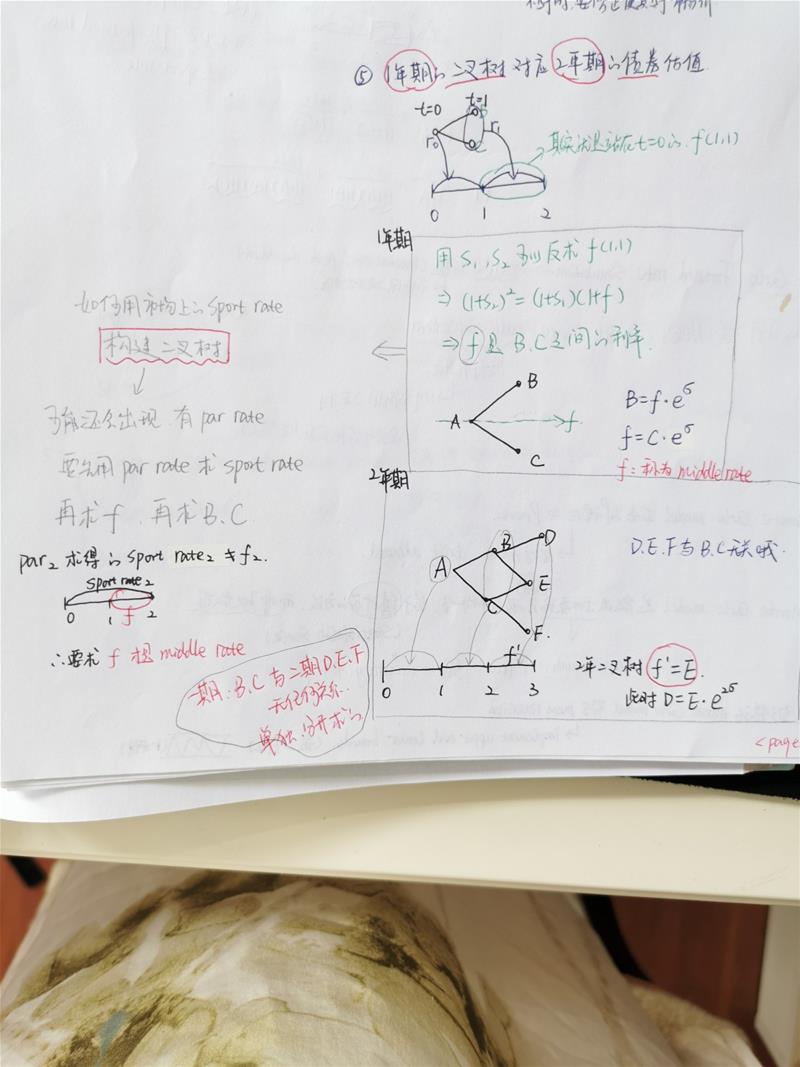 ⑤ 1年期的二叉树对应2年期的债券估值
t=0 t=1
r₀ r₁
其实就是站在t=0的 f(1,1)
0 1 2
1年期
用 S₁, S₂ 可以反求 f(1,1)
⇒ (1+S₂)² = (1+S₁)(1+f)
⇒ f是 B.C之间的利率.
A B C f
B=f·e^σ
f=C·e^σ
f: 称为 middle rate
如何用市场上的 sport rate
构造二叉树
可能还会出现 有 par rate
要先用 par rate 求 sport rate
再求 f 再求 B.C
par₂ 求得的 sport rate₂ ≠ f₂.
sport rate₂
0 1 f 2
∴要求 f 才是 middle rate
一期: B.C 与二期 D.E.F
无任何关系.
单独.分开求的
2年期
A B C D E F.
f'
0 1 2 3
D.E.F 与 B.C 无关哦.
2年二叉树 f'=E.
此时 D=E·e^2σ
<page